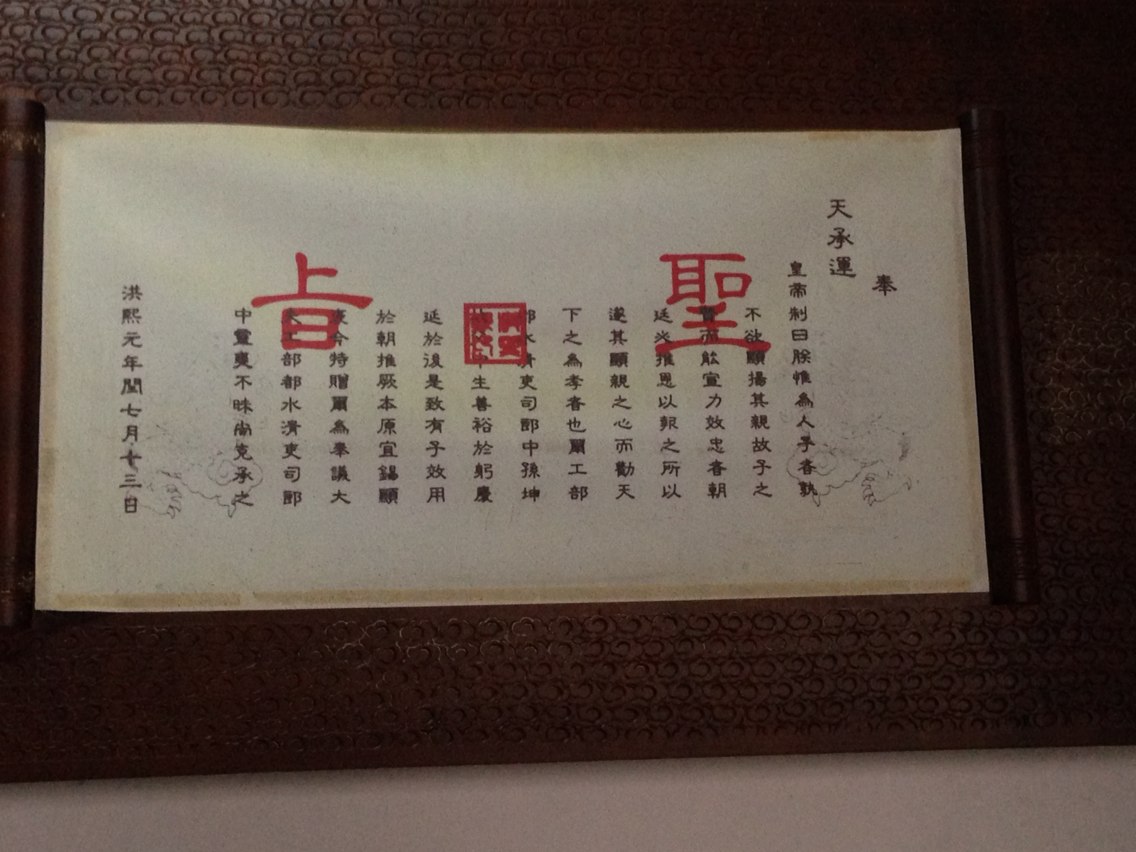 奉
天承運
皇帝制曰朕惟為人子者孰
不欲顯揚其親故子之
而能宣力效忠者朝
廷必推恩以報之所以
遂其顯親之心而勸天
下之為孝者也爾工部
都水清吏司郎中孫坤
平生善裕於躬慶
延於後是致有子效用
於朝推厥本原宜錫顯
今特贈爾為奉議大
夫工部都水清吏司郎
中靈爽不昧尚克承之
洪熙元年閏七月十三日
聖旨